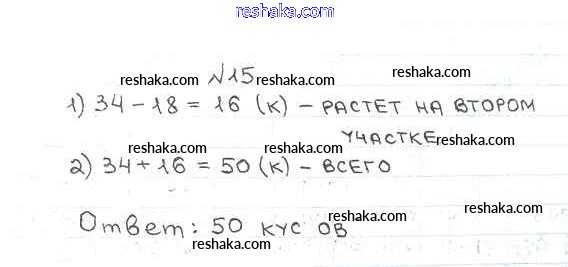 reshaka.com
№15
reshaka.com reshaka.com reshaka.com
1) 34 - 18 = 16 (к) - РАСТЕТ НА ВТОРОМ
УЧАСТКЕ
reshaka.com reshaka.com
2) 34 + 16 = 50 (к) - ВСЕГО
Ответ: 50 КУС ОВ
reshaka.com
reshaka.com